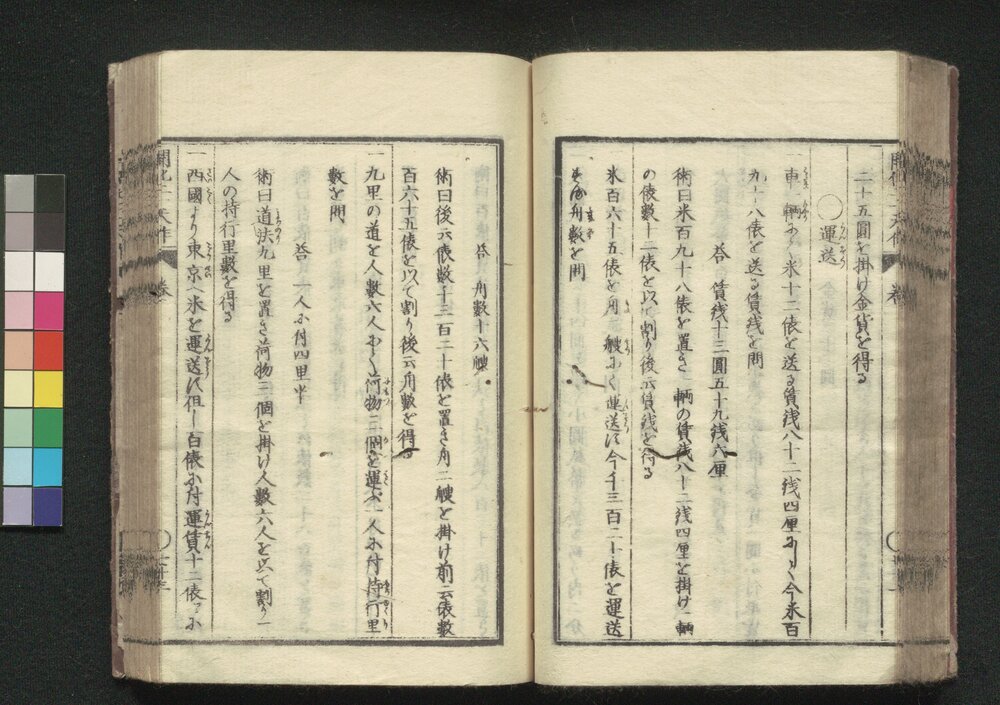 二十五圓を掛け金貨を得る
〇運送
車一輌にて米十二俵を送る賃銭八十二銭四厘にして今米百
九十八俵を送る賃銭を問
答 賃銭十三圓五十九銭六厘
術曰米百九十八俵を置き一輌の賃銭八十二銭四厘を掛け一輌
の俵数十二俵を以て割り後云賃銭を得る
米百六十五俵を舟二艘にて運送す今千三百二十俵を運送
舟数を問
答 舟数十六艘
術曰後云俵数千三百二十俵を置き舟二艘を掛け前云俵数
百六十五俵を以て割り後云舟数を得る
一九里の道を人数六人にて荷物三個を運ぶ一人に付持行里
数を問
答 一人に付四里半
術曰道法九里を置き荷物三個を掛け人数六人を以て割り一
人の持行里数を得る
一西國より東京へ米を運送す但し百俵に付運賃十二俵に